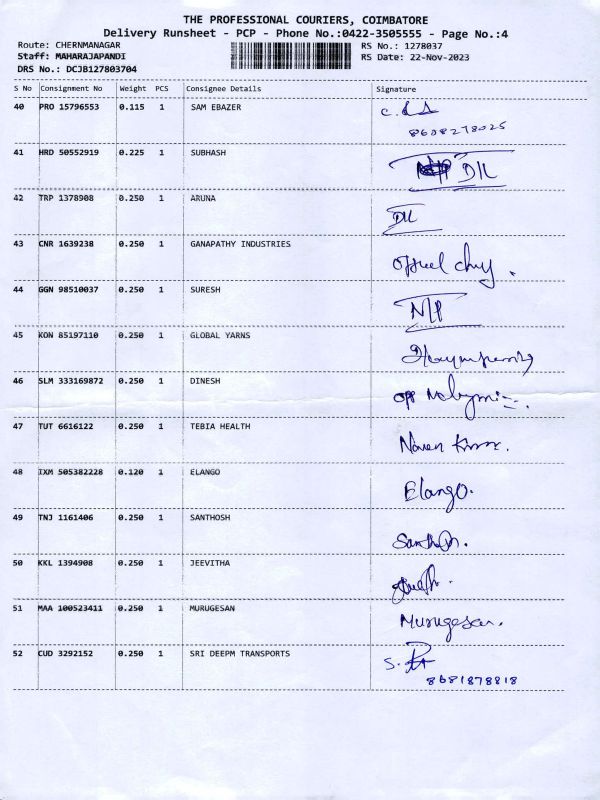 THE PROFESSIONAL COURIERS, COIMBATORE
Delivery Runsheet - PCP - Phone No.:0422-3505555 - Page No.:4
Route: CHERNMANAGAR RS No.: 1278037
Staff: MAHARAJAPANDI RS Date: 22-Nov-2023
DRS No.: DCJB127803704
S No Consignment No Weight PCS Consignee Details Signature
40 PRO 15796553 0.115 1 SAM EBAZER
8608278025
41 HRD 50552919 0.225 1 SUBHASH D/L
42 TRP 1378908 0.250 1 ARUNA D/L
43 CNR 1639238 0.250 1 GANAPATHY INDUSTRIES
44 GGN 98510037 0.250 1 SURESH N/P
45 KON 85197110 0.250 1 GLOBAL YARNS
46 SLM 333169872 0.250 1 DINESH
47 TUT 6616122 0.250 1 TEBIA HEALTH Naven Kumar.
48 IXM 505382228 0.120 1 ELANGO Elango.
49 TNJ 1161406 0.250 1 SANTHOSH
50 KKL 1394908 0.250 1 JEEVITHA
51 MAA 100523411 0.250 1 MURUGESAN Murugesan.
52 CUD 3292152 0.250 1 SRI DEEPM TRANSPORTS
8681878818